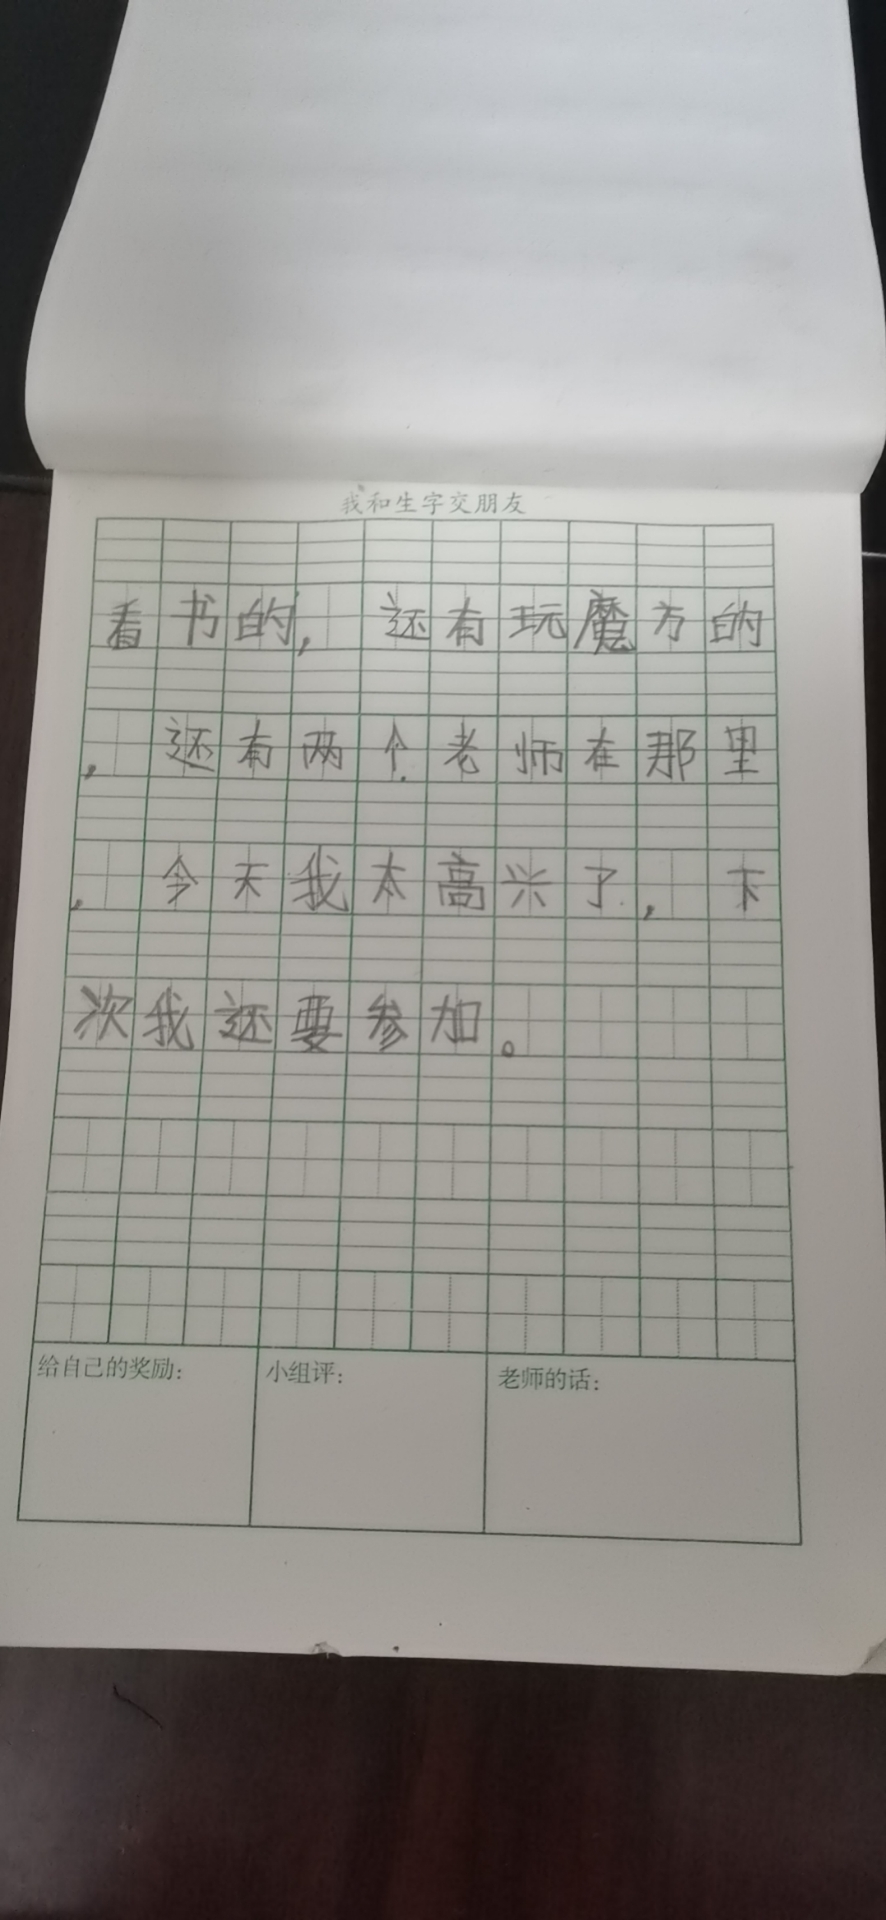 我和生字交朋友
看书的,还有玩魔方的
,还有两个老师在那里
,今天我太高兴了,下
次我还要参加。
给自己的奖励:
小组评:
老师的话: